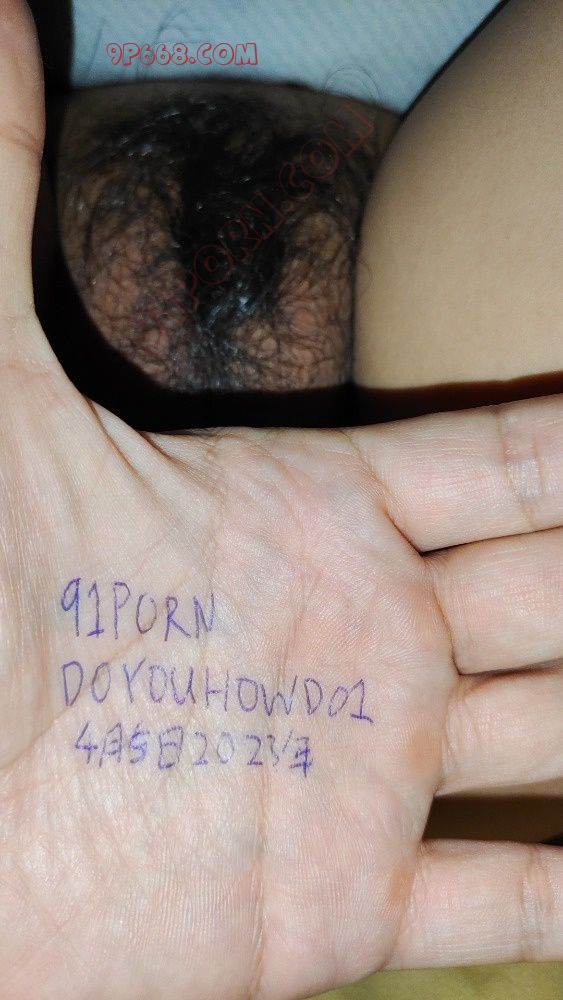 9P668.COM
91PORN
DOYOUHOWDO1
4月5日2023年